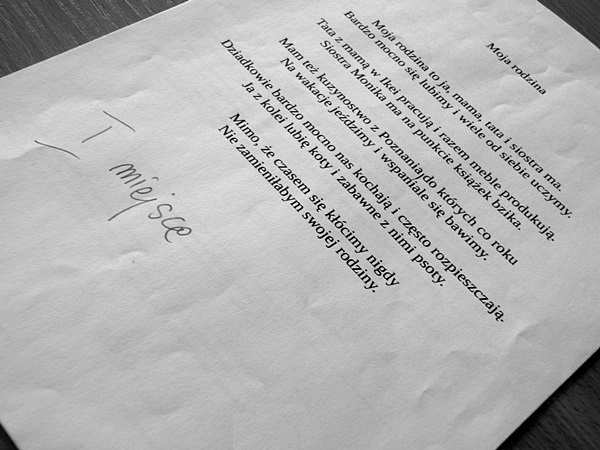 Moja rodzina
Moja rodzina to ja, mama, tata i siostra ma.
Bardzo mocno się lubimy i wiele od siebie uczymy.
Tata z mamą w Ikei pracują i razem meble produkują.
Siostra Monika ma na punkcie książek bzika.
Mam też kuzynostwo z Poznania,do których co roku
Na wakacje jeździmy i wspaniale się bawimy.
Dziadkowie bardzo mocno nas kochają i często rozpieszczają.
Ja z kolei lubię koty i zabawne z nimi psoty.
Mimo, że czasem się kłócimy nigdy
Nie zamieniłabym swojej rodziny.
I miejsce